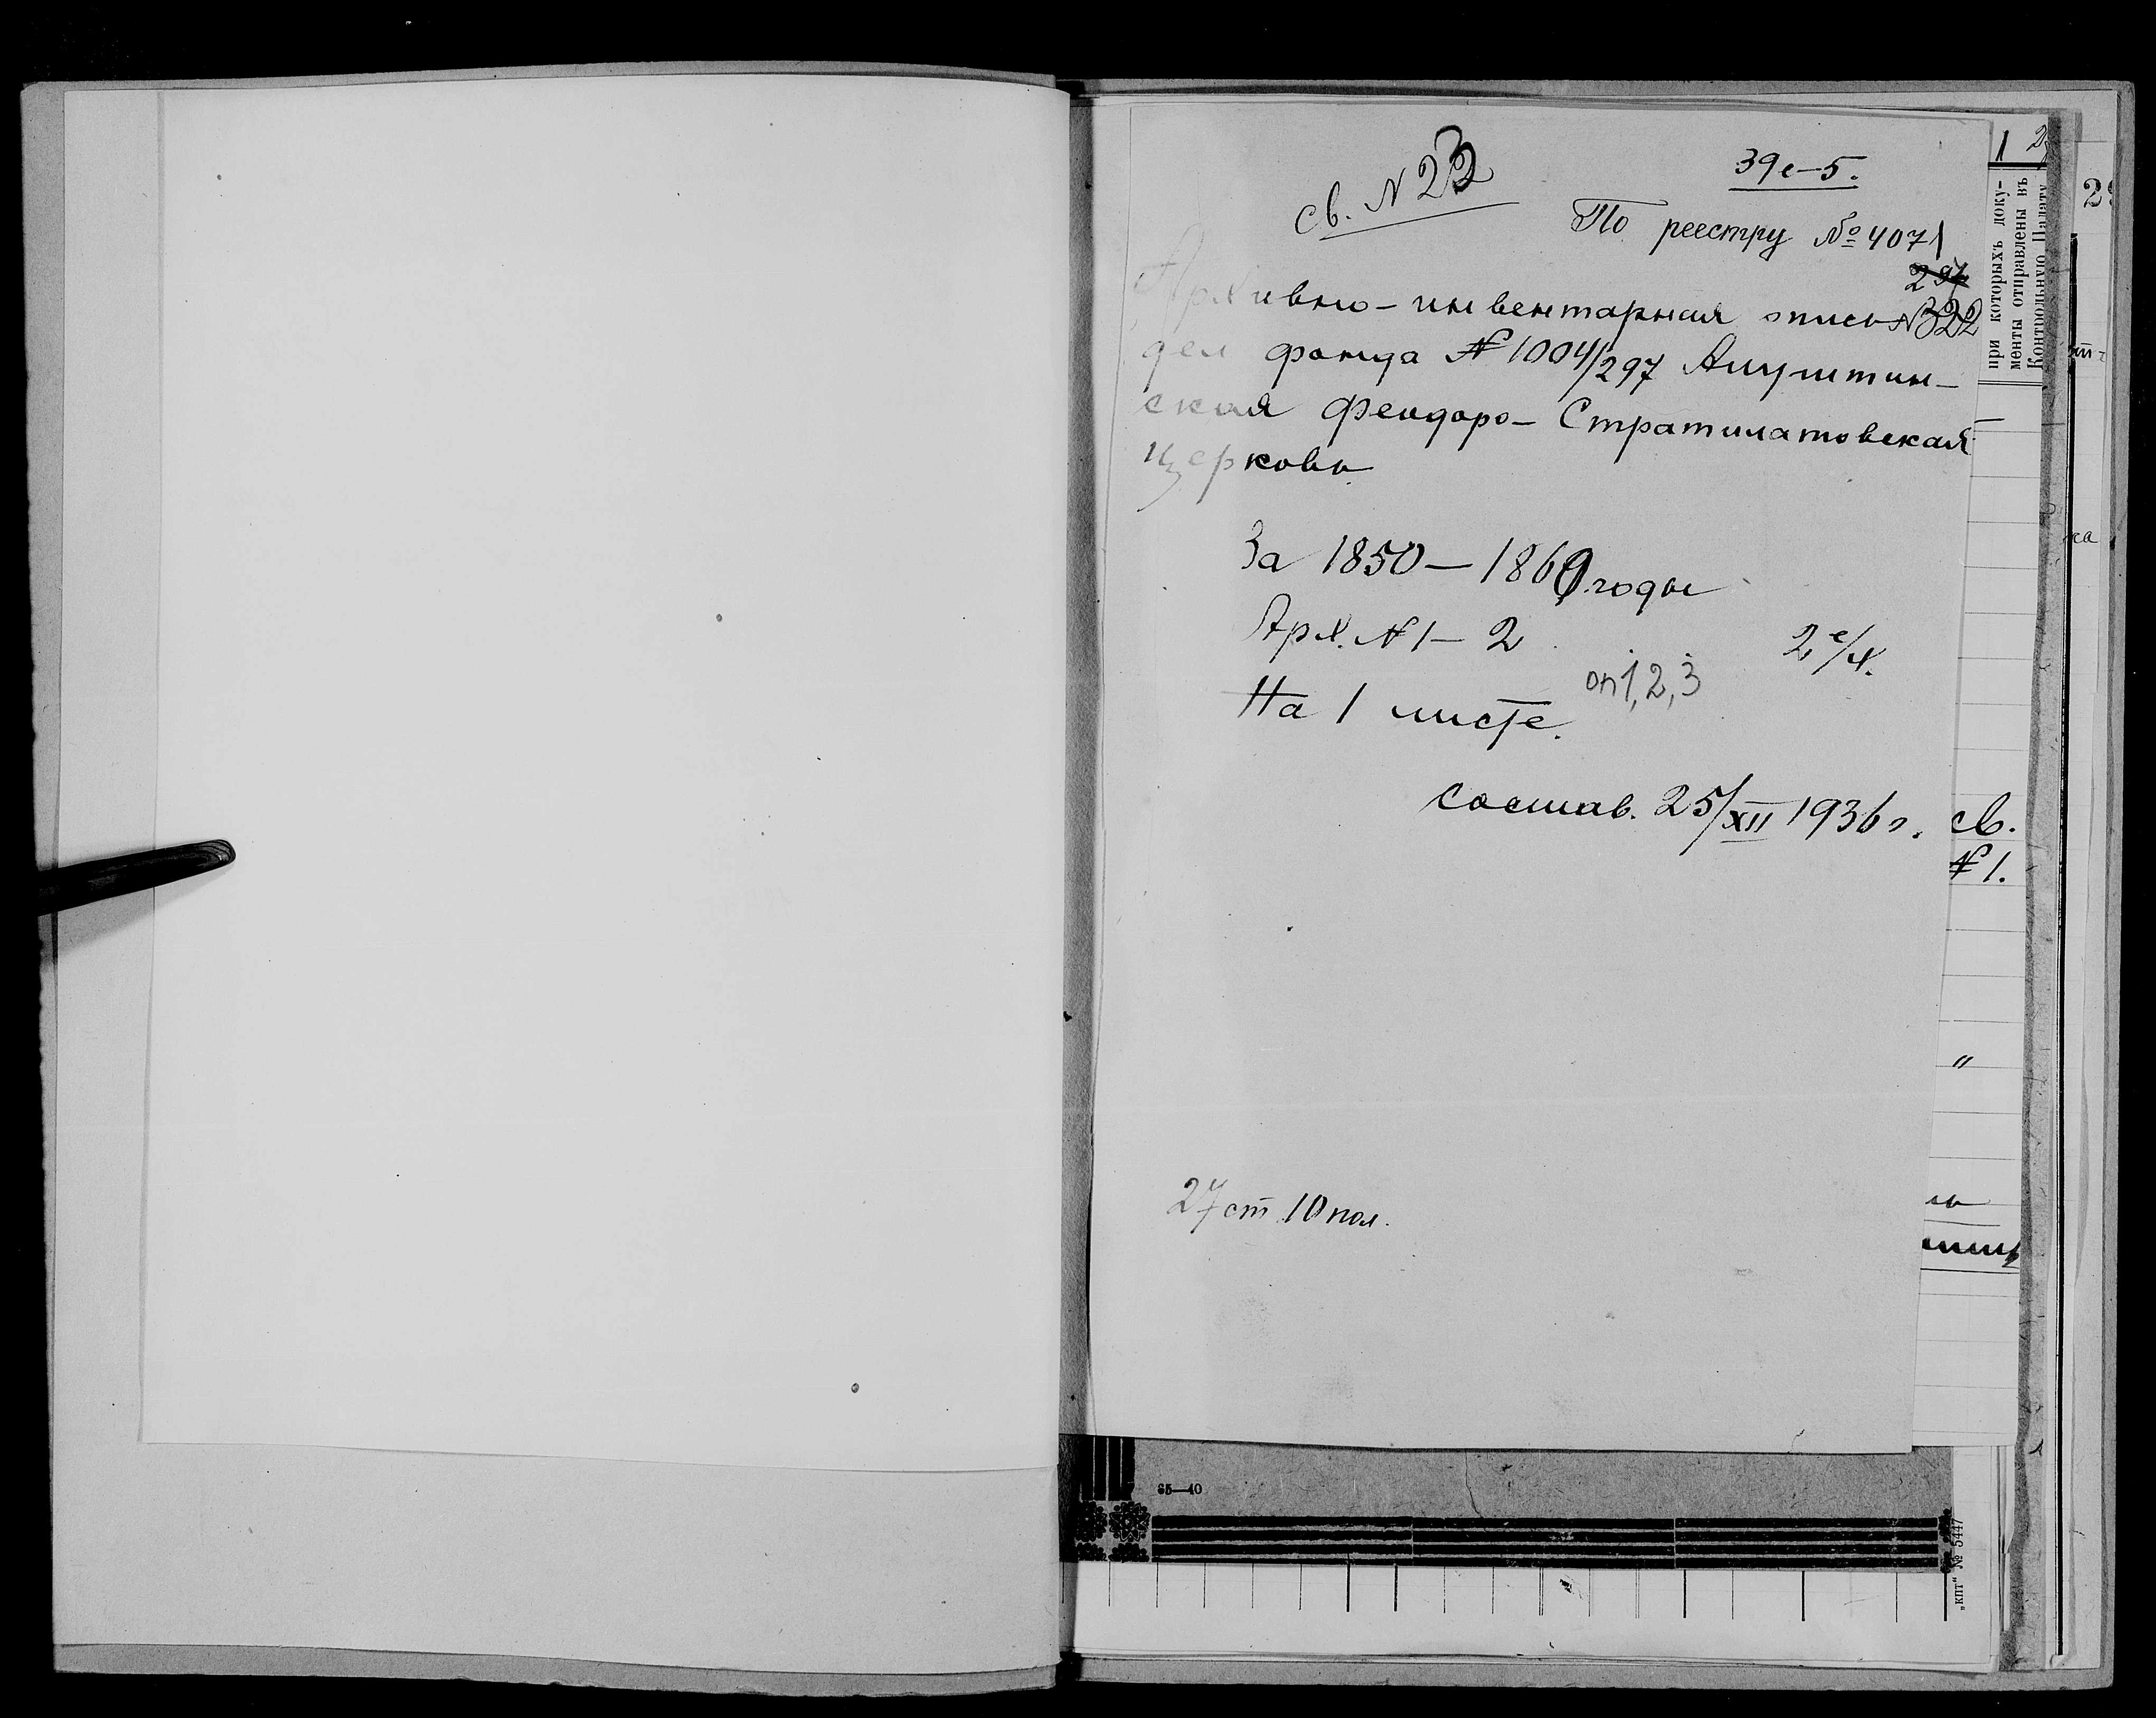 св. N 23
39е-5.
По реестру № 4071
297
Архивно-инвентарная опись N 322
дел фонда N 1004/297 Алуштин-
ская Феодоро-Стратилатовская
церковь
За 1850-1869 годы
Арх. N 1-2
2 е/х.
оп 1, 2, 3
На 1 листе.
состав. 25/XII 1936 г.
св.
N 1.
"
27 ст 10 пол.
при которыхъ доку-
менты отправлены въ
Контрольную Палату
65—40
„КПТ“ № 5447